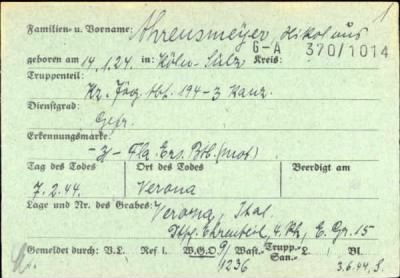 1
Familien- u. Vorname: Ahrensmeyer, Nikolaus
G-A 370/1014
geboren am 14.1.24. in: Köln-Sülz Kreis:
Truppenteil:
Kz. Jäg. Abt. 194 - 3 Kanz.
Dienstgrad:
Gefr.
Erkennungsmarke:
- Fla. Ers. Btl. (mot)
Tag des Todes Ort des Todes Beerdigt am
7.2.44. Verona
Lage und Nr. des Grabes: Verona, Ital.
Ehrenteil, 4. Rh., E. Gr. 15
Gemeldet durch: V.L. Ref i. W.G.O 9/ Wast.- Trupp.- L. Bl.
San.-
1236 3.6.44.